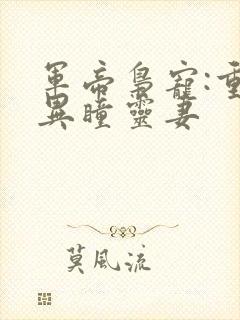 軍帝梟寵:重
異瞳靈妻
莫風流